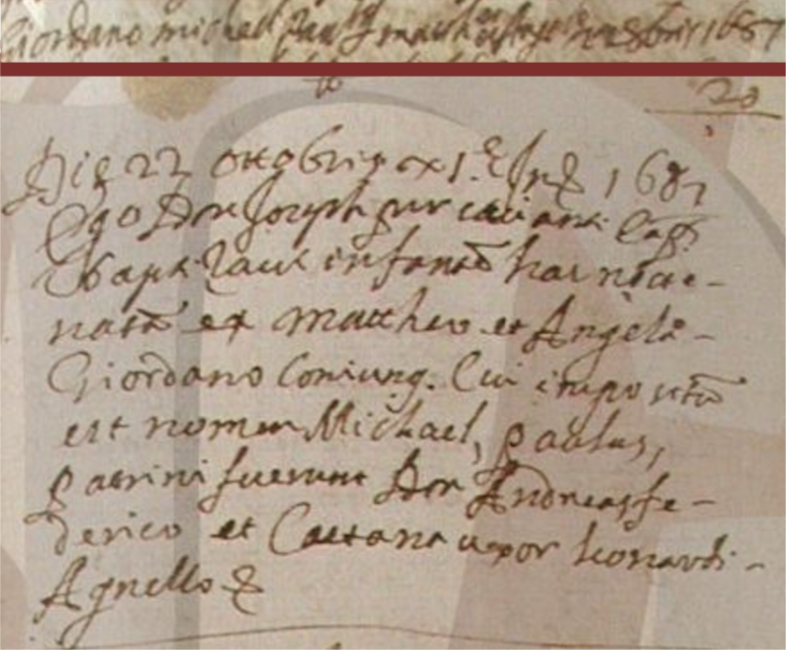 Giordano Michel Paul
20
Die 22 Ottobris xi.e Ind. 1687
Ego Don Joseph
Baptizavi infantē hac nocte
natū ex Mattheo et Angela
Giordano Coniung. Cui impositū
est nomen Michael, Paulus,
patrini fuerunt Don Andreas fe-
derico et Caetana uxor Leonardi
Agnello &